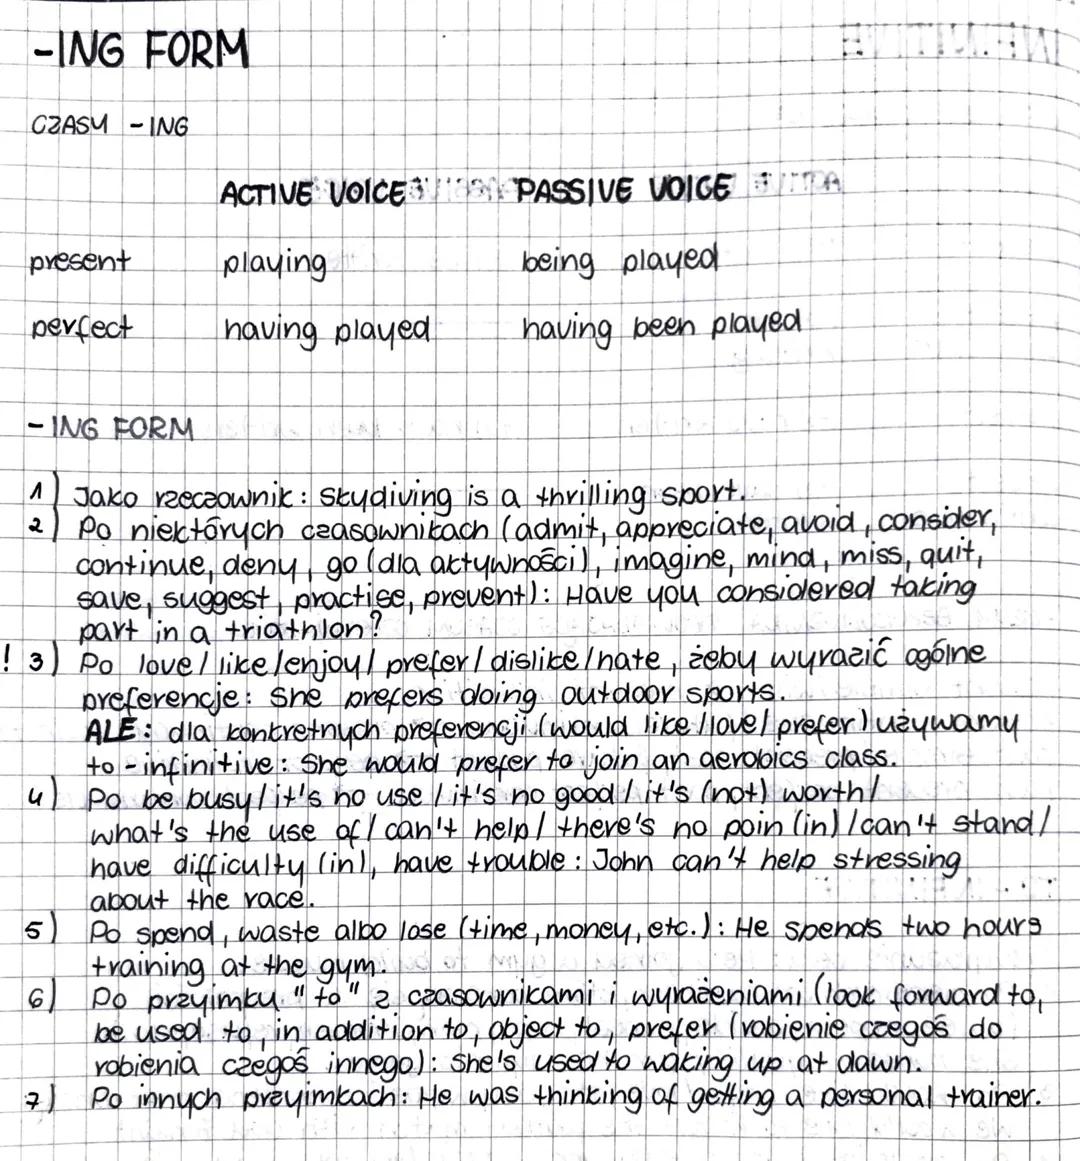 -ING FORM
CZASY -ING
ACTIVE VOICE PASSIVE VOICE
present playing being played
perfect having played having been played
-ING FORM
1) Jako rzeczownik: skydiving is a thrilling sport.
2) Po niektórych czasownikach (admit, appreciate, avoid, consider,
continue, deny, go (dla aktywności), imagine, mind, miss, quit,
save, suggest, practise, prevent): Have you considered taking
part in a triathlon?
! 3) Po love/like/enjoy/prefer/dislike/hate, żeby wyrazić ogólne
preferencje: She prefers doing outdoor sports.
ALE: dla konkretnych preferencji (would like/love/prefer) używamy
to-infinitive: She would prefer to join an aerobics class.
4) Po be busy/it's no use/it's no good/it's (not) worth/
what's the use of/can't help/there's no poin (in)/can't stand/
have difficulty (in), have trouble: John can't help stressing
about the race.
5) Po spend, waste albo lose (time, money, etc.): He spends two hours
training at the gym.
6) Po przyimku "to" z czasownikami i wyrażeniami (look forward to,
be used to, in addition to, object to, prefer (robienie czegoś do
robienia czegoś innego): She's used to waking up at dawn.
7) Po innych przyimkach: He was thinking of getting a personal trainer.